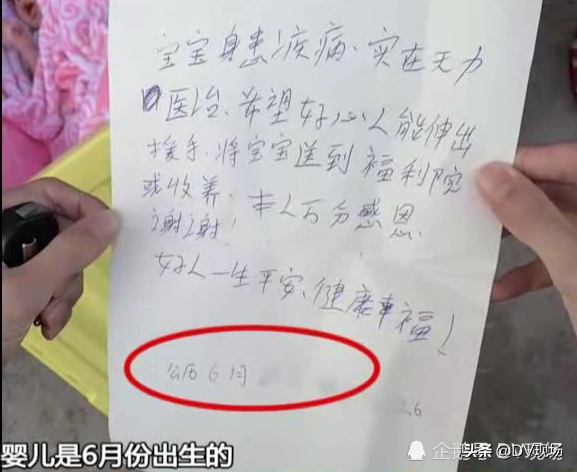 宝宝身患疾病、实在无力
医治、希望好心人能伸出
援手、将宝宝送到福利院
或收养、本人万分感恩、
谢谢！
好人一生平安、健康幸福！
公历6月
26
婴儿是6月份出生的
头条@DV现场